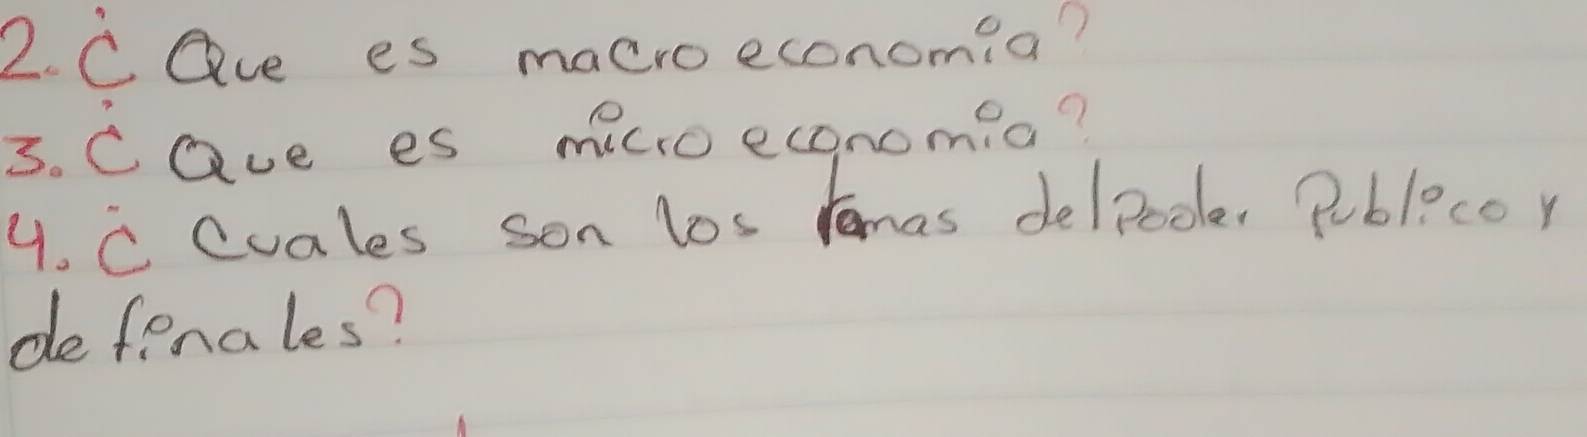 2. ¿ Que es macro economia?
3. ¿ Que es micro economia?
4. ¿ Cuales son los ramas del Poder Publico y
definales?